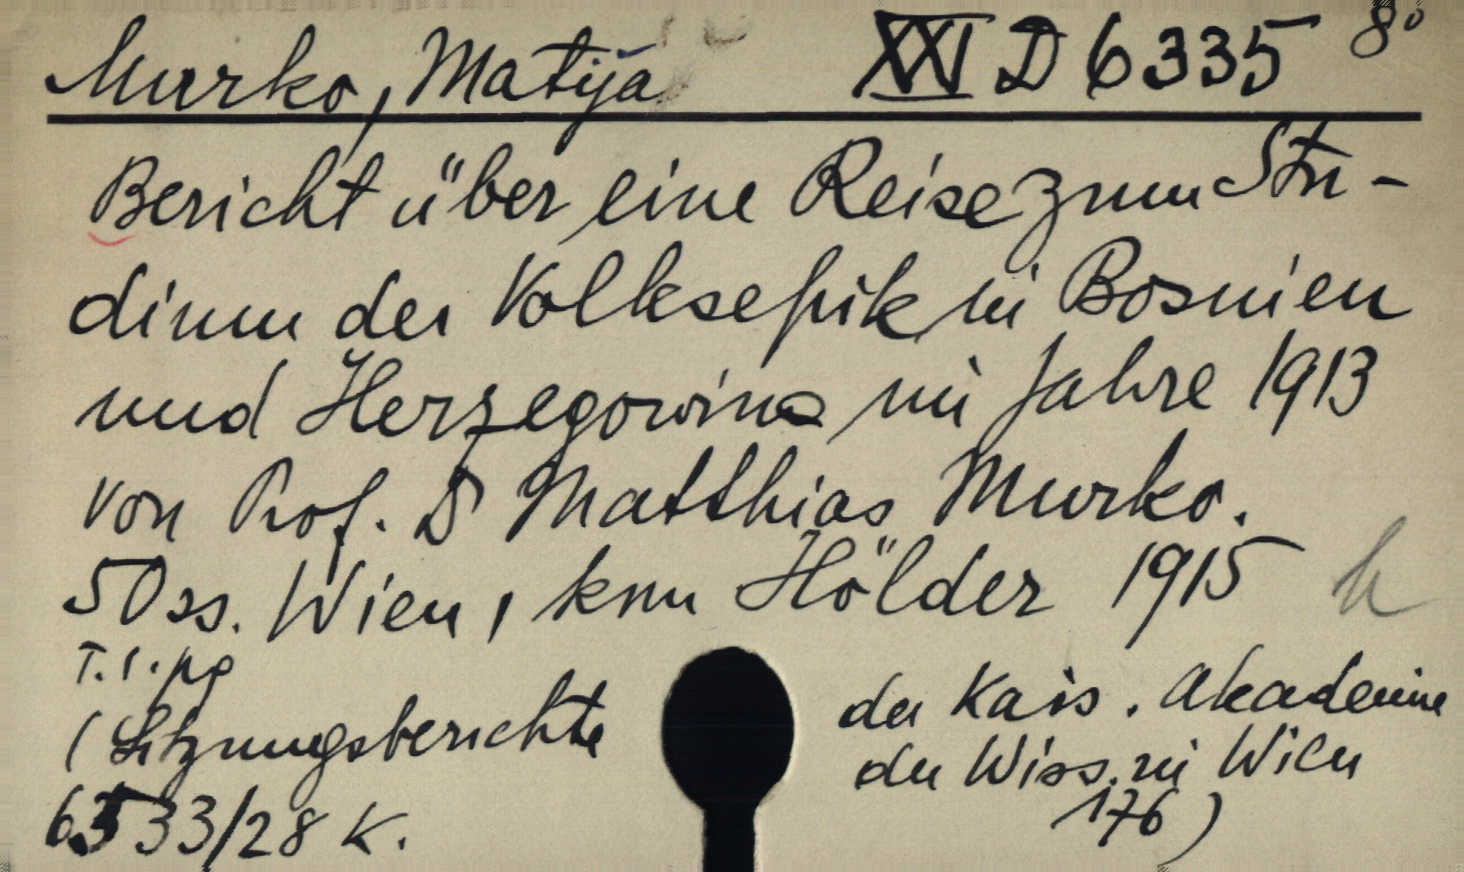 Murko, Matija XXI D 6335 8°
Bericht über eine Reise zum Stu-
dium der Volksepik in Bosnien
und Herzegowina im Jahre 1913
von Prof. Dr Matthias Murko.
50 ss. Wien, kom Hölder 1915 h
T. 1. pg
(Sitzungsberichte der Kais. Akademie
der Wiss. in Wien
176)
6333/28 K.